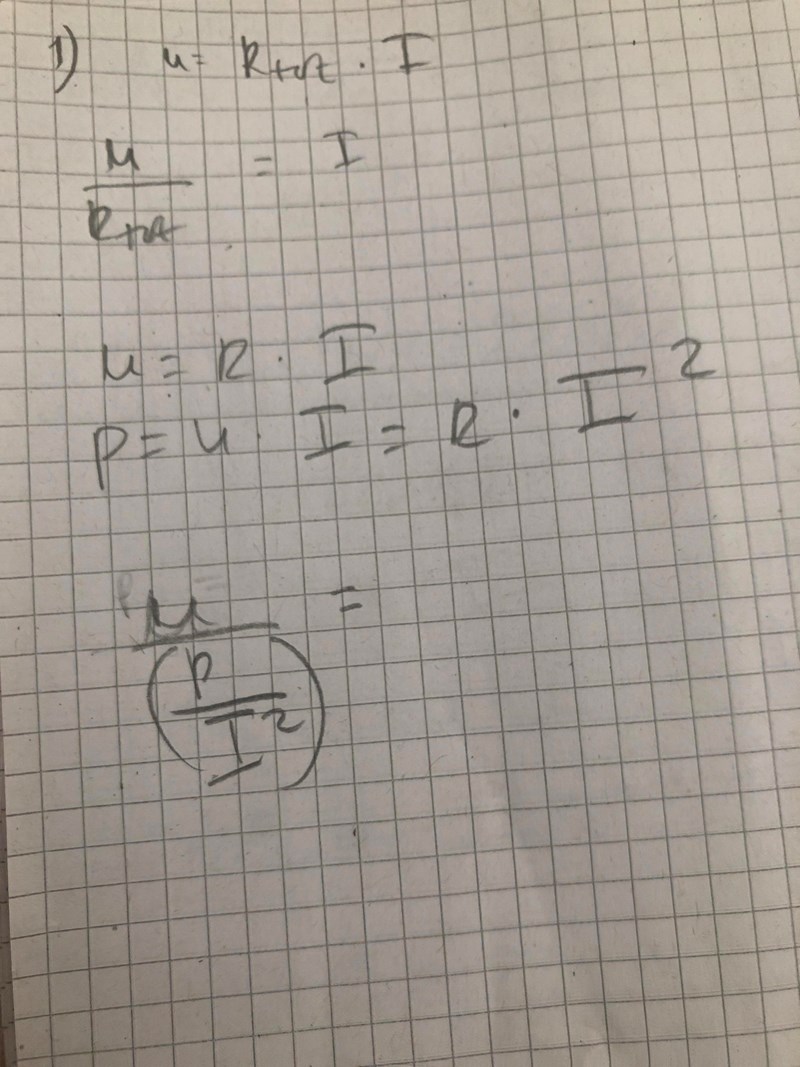 1) u = R_tot · I
u / R_tot = I
u = R · I
P = u · I = R · I²
u / (P / I²) =